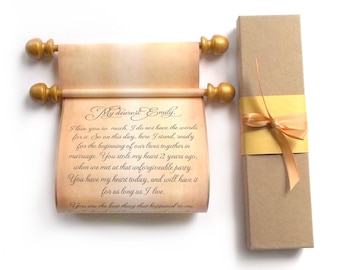 My dearest Emily,
I love you so much, I do not have the words
for it. So on this day, here I stand, ready
for the beginning of our lives together in
marriage. You stole my heart 2 years ago,
when we met at that unforgivable party.
You have my heart today, and will have it
for as long as I live.
You are the best thing that happened to